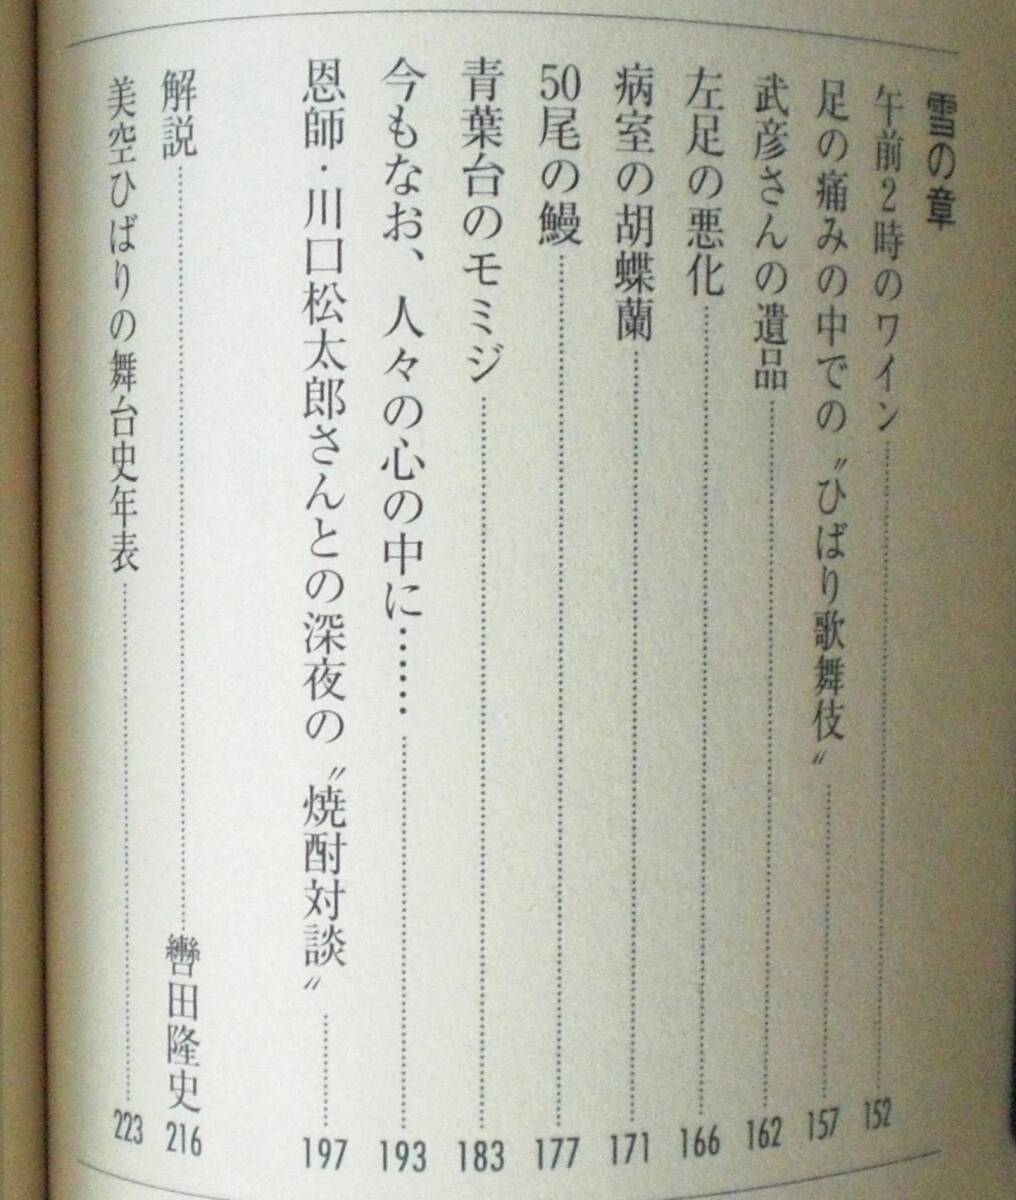 雪の章
午前2時のワイン 152
足の痛みの中での〝ひばり歌舞伎〟 157
武彦さんの遺品 162
左足の悪化 166
病室の胡蝶蘭 171
50尾の鰻 177
青葉台のモミジ 183
今もなお、人々の心の中に…… 193
恩師・川口松太郎さんとの深夜の〝焼酎対談〟 197
解説 轡田隆史 216
美空ひばりの舞台史年表 223